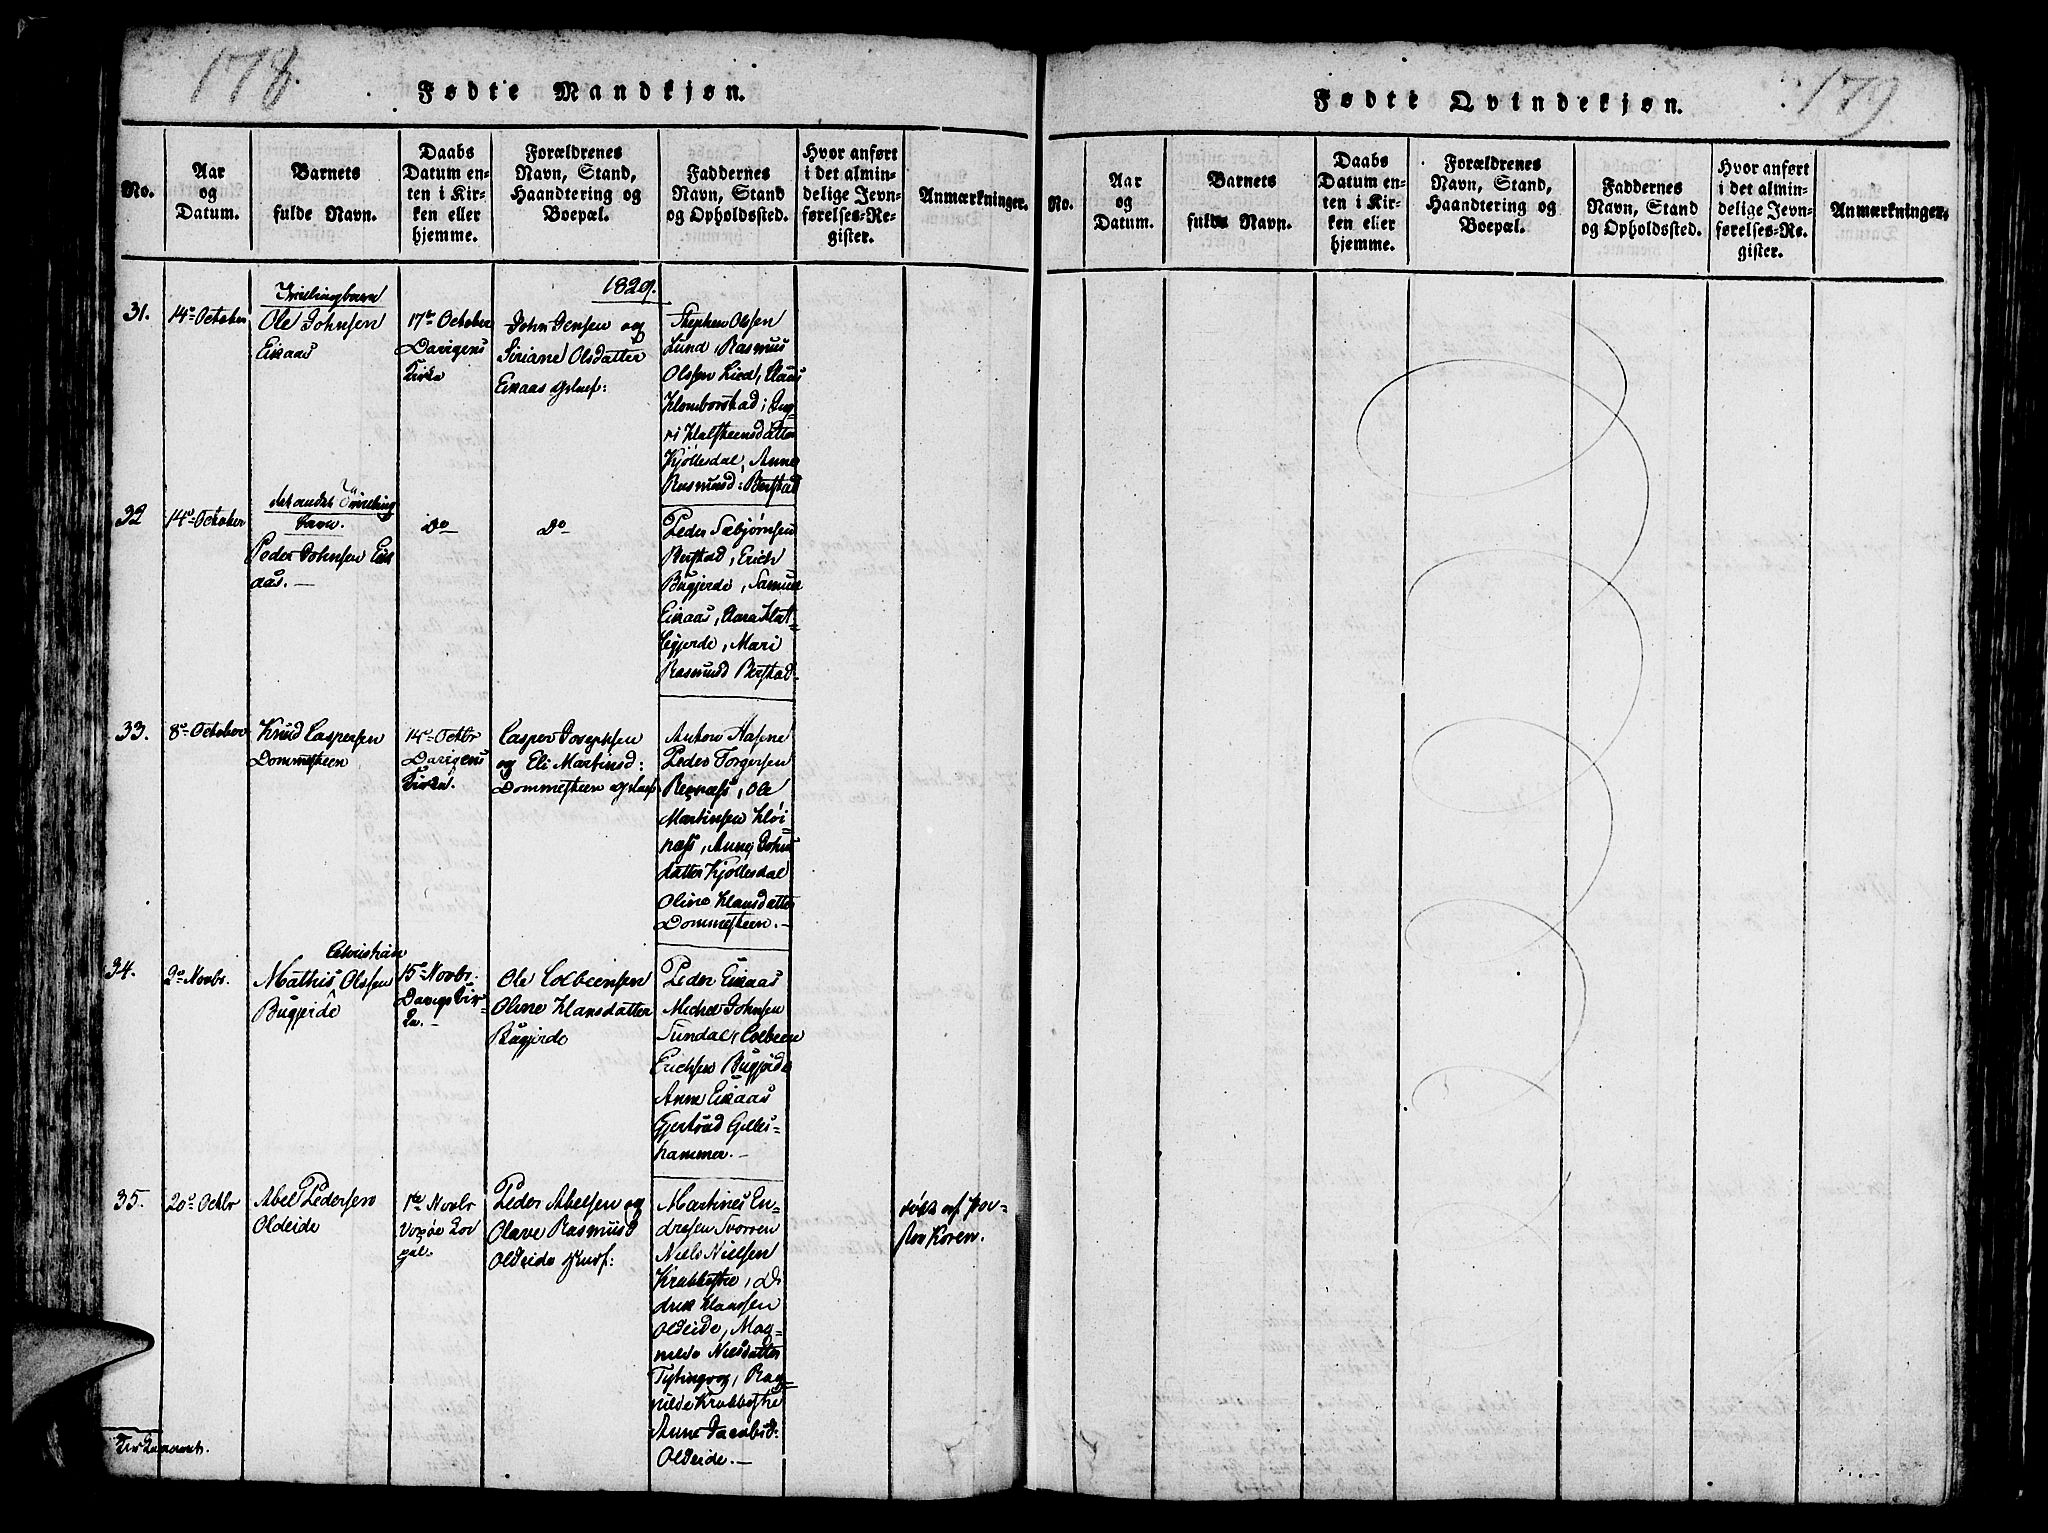 178.
Fødte Mandkjøn.
No.
Aar
og
Datum.
Barnets
fulde Navn.
Daabs
Datum en-
ten i Kir-
ken eller
hjemme.
Forældrenes
Navn, Stand,
Haandtering og
Boepæl.
Faddernes
Navn, Stand
og Opholdssted.
Hvor anført
i det almin-
delige Jevn-
førelses-Re-
gister.
Anmærkninger.
1829.
31.
14de October
Tvillingbarn
Ole Johnsen
Eikaas
17de October
Davigens
Kirke
John Jensen og
Siriane Olsdatter
Eikaas
Stephen Olsen
Lund, Rasmus
Olsen Lied, Claas
Homborstad; Ing-
ri Halsteensdatter
Kjøllesdal, Anne
Rasmusd: Berstad
32
14de October
det andet Tvilling
barn.
Peder Johnsen Eik
aas. —
Do
Do
Peder Sæbjørnsen
Berstad, Erich
Bugjerde, Samuel
Eikaas,
Mari
Rasmusd Berstad
33.
8de October
Knud Caspersen
Dommesteen
14de Octbr
Davigens
Kirke.
Casper Josephsen
og Eli Martinsd:
Dommesteen
Anders Aasene
Peder Torgersen
Rognæss, Ole
Martinsen Høi-
næss, Anne Johns
datter Kjøllesdal
Oline Hansdatter
Dommesteen. —
34.
2de Novbr.
Christian
Mathis Olssen
Bugjerde
15de Novbr.
Davigs Kir-
ke. —
Ole Colbeensen
Oline Hansdatter
Bugjerde
Peder Eikaas
Michel Johnsen
Sundal, Colbeen
Erichsen Bugjerde
Anne Eikaas
Gjertrud Gilles-
hammer. —
35.
20de Octbr
Abel Pedersen
Oldeide
1ste Novbr
Peder Abelsen og
Olave Rasmusd
Oldeide
Martines En-
dresen Tvorren
Niels Nielsen
Krabbestre, Di
drik Claussen
Oldeide, Mag-
nilde Nielsdatter
Tytingvog, Rag-
nilde Krabbestre
Anne Jacobsd.
Oldeide. —
døbt af Pas-
stor Koren.
179.
Fødte Qvindekjøn.
No.
Aar
og
Datum.
Barnets
fulde Navn.
Daabs
Datum en-
ten i Kir-
ken eller
hjemme.
Forældrenes
Navn, Stand,
Haandtering og
Boepæl.
Faddernes
Navn, Stand
og Opholdssted.
Hvor anført
i det almin-
delige Jevn-
førelses-Re-
gister.
Anmærkninger.